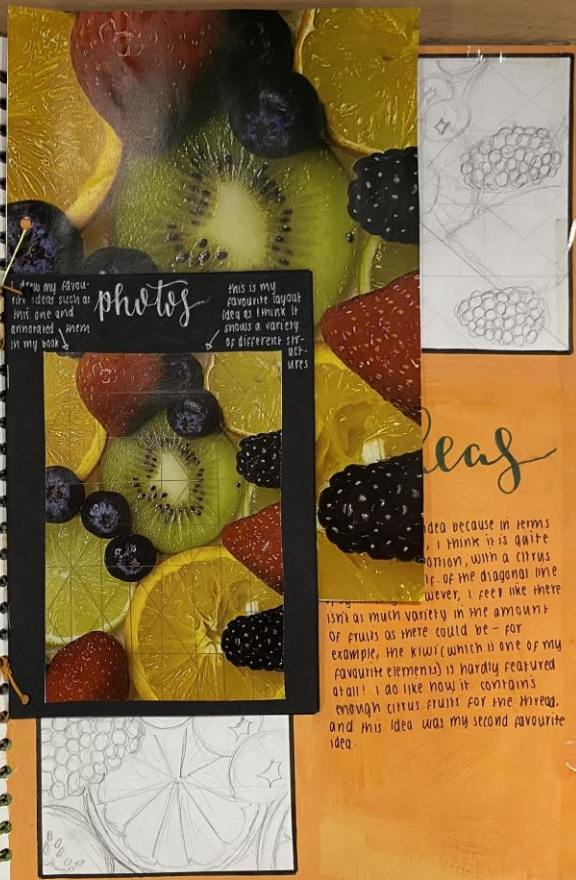 draw my favou-
rite ideas such as
this one and
annotated them
in my book
photos
this is my
favourite layout
idea as I think it
shows a variety
of different str-
uct-
ures
deas
idea because in terms
, I think it is quite
ortion, with a citrus
of the diagonal line
wever, I feel like there
isn't as much variety in the amount
of fruits as there could be - for
example, the kiwi (which is one of my
favourite elements) is hardly featured
at all! I do like how it contains
enough citrus fruits for the thread,
and this idea was my second favourite
idea.